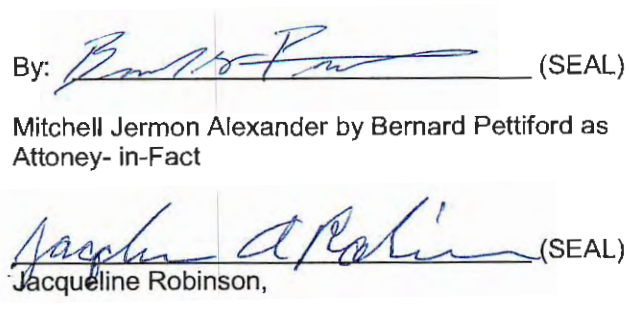 By: (SEAL)
Mitchell Jermon Alexander by Bernard Pettiford as
Attoney- in-Fact
Jacqueline A Robinson (SEAL)
Jacqueline Robinson,